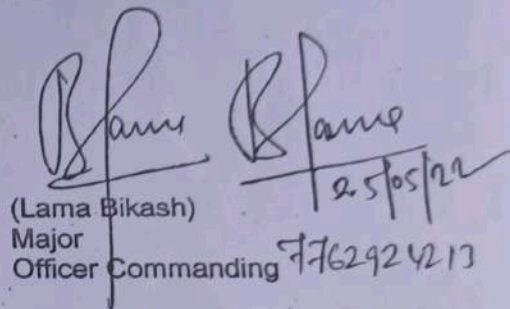 BLama BLama
25/05/22
(Lama Bikash)
Major
Officer Commanding 7762924213